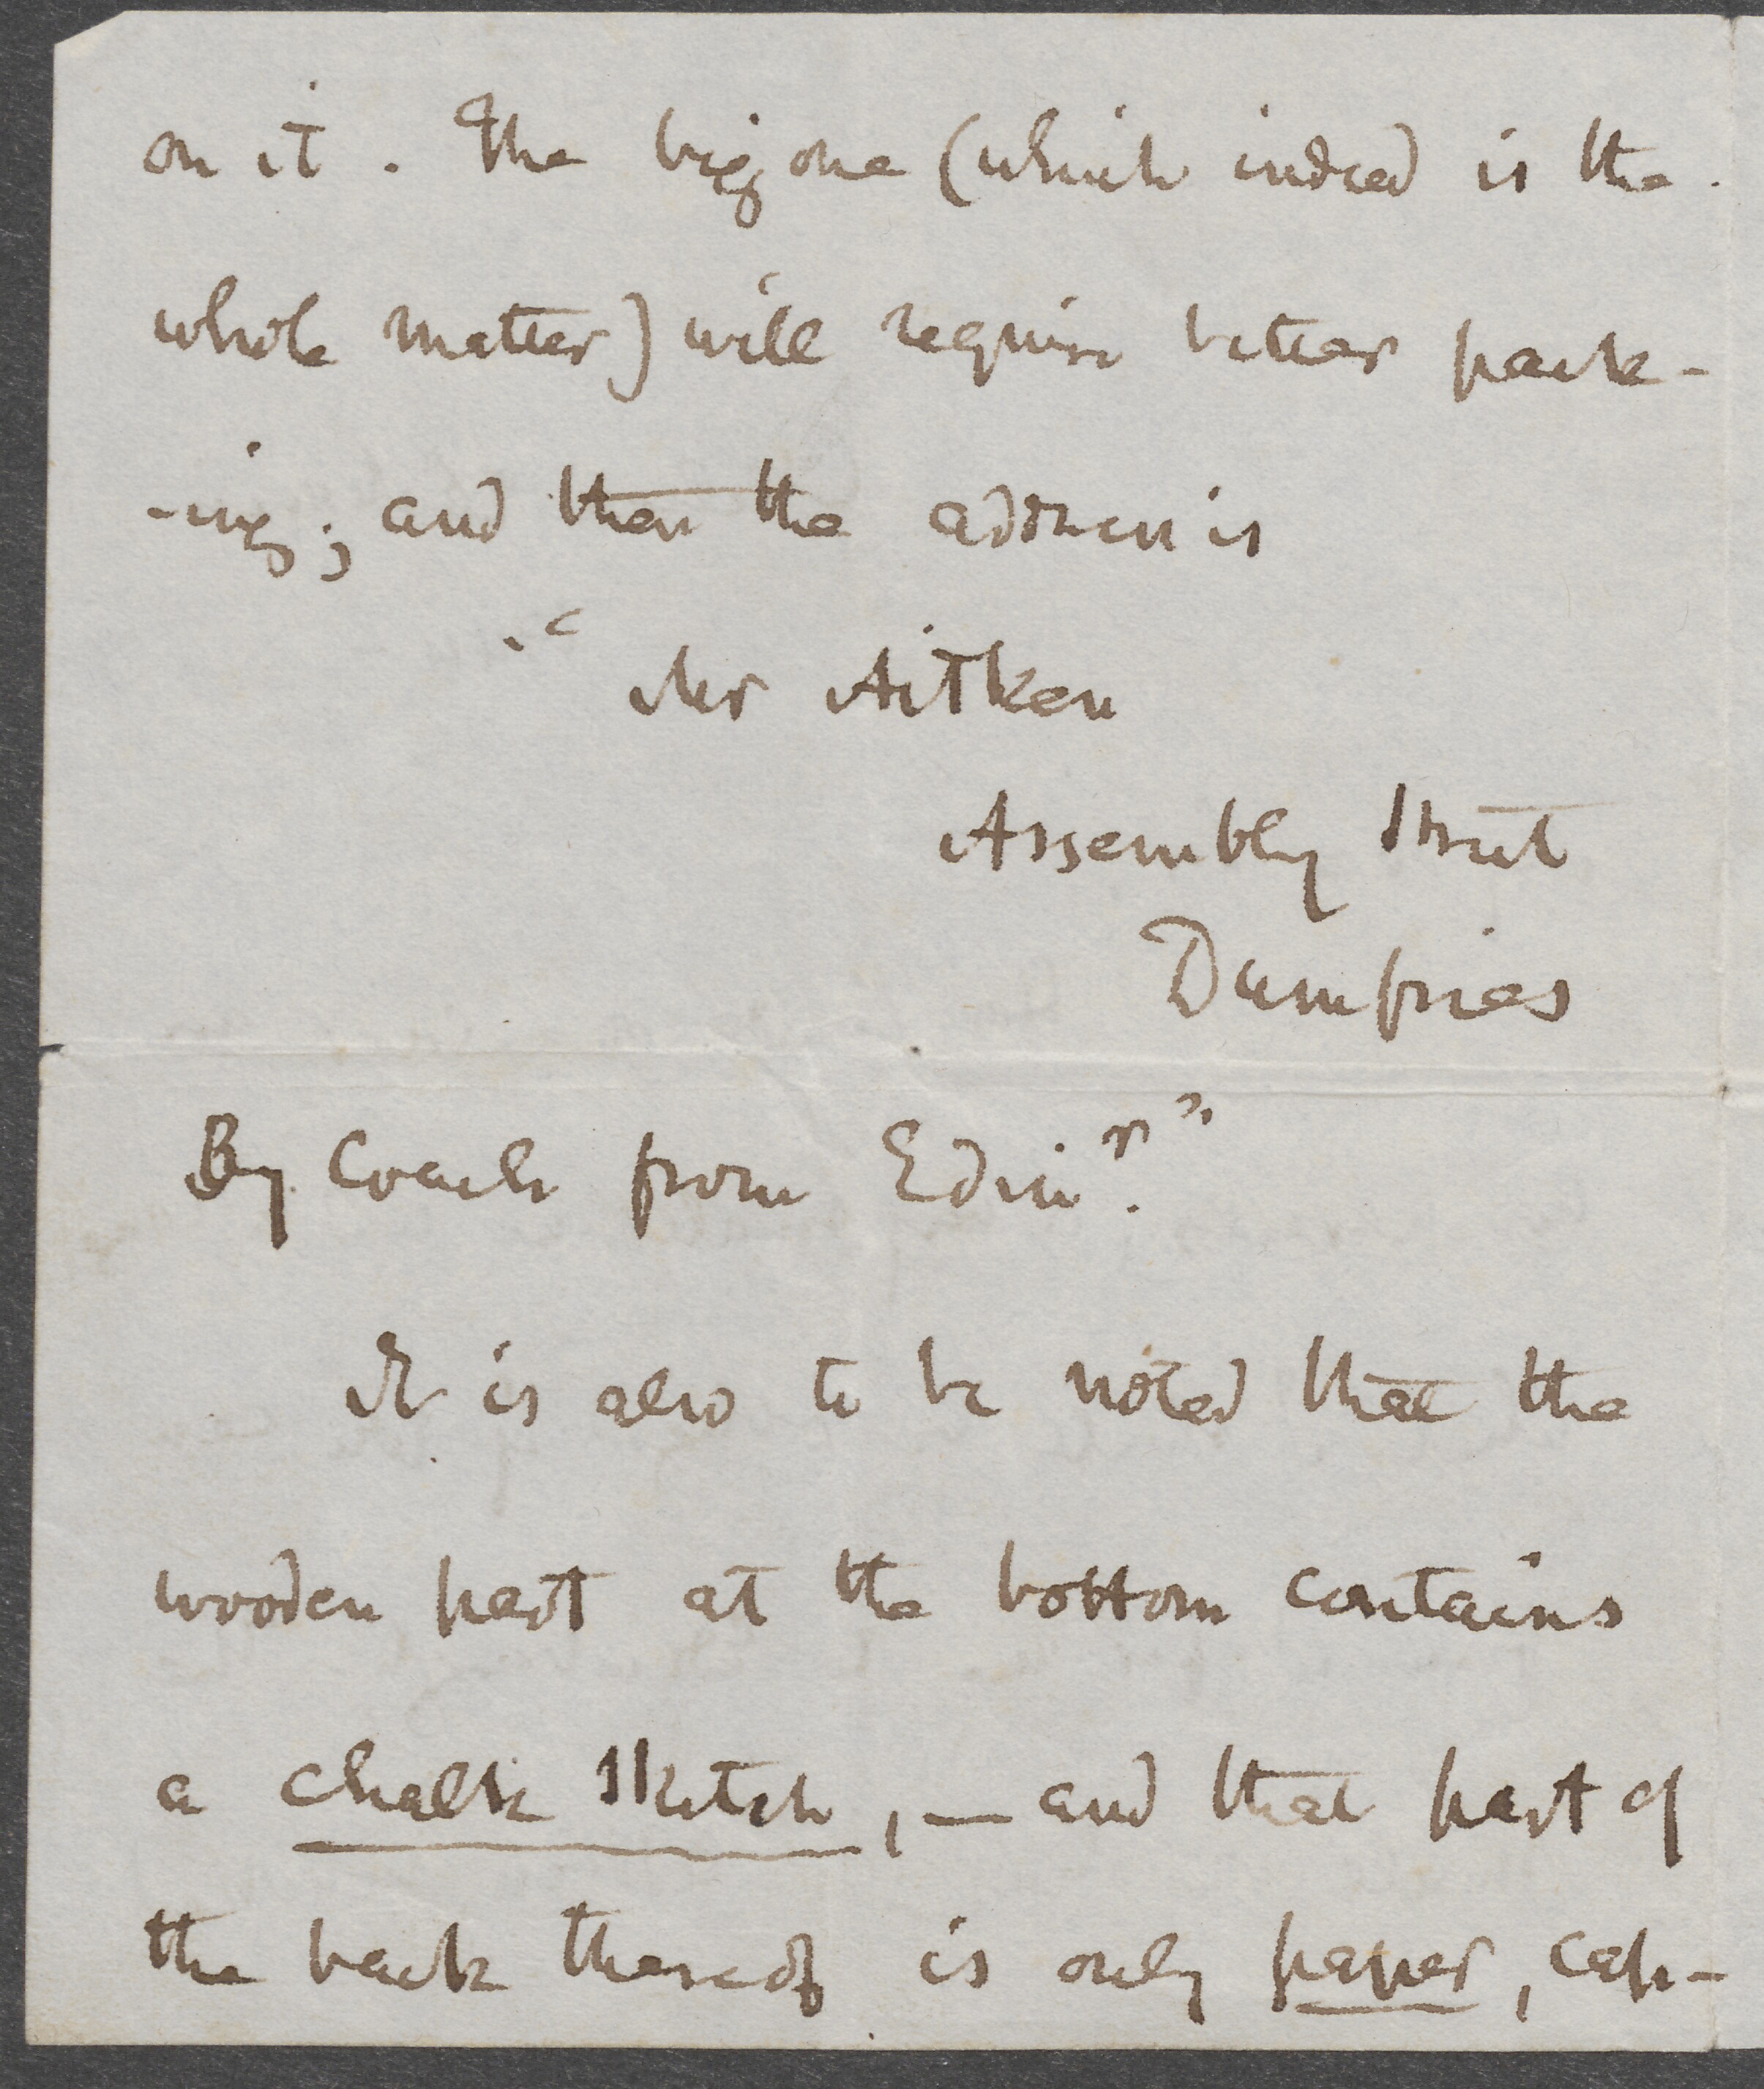 on it. The big one (which indeed is the
whole matter) will require better pack-
-ing; and then the address is
"Mr Aitken
Assembly Street
Dumfries
By Coach from Edinr."
It is also to be noted that the
wooden part at the bottom contains
a chalk sketch, — and that part of
the back thereof is only paper, cap-